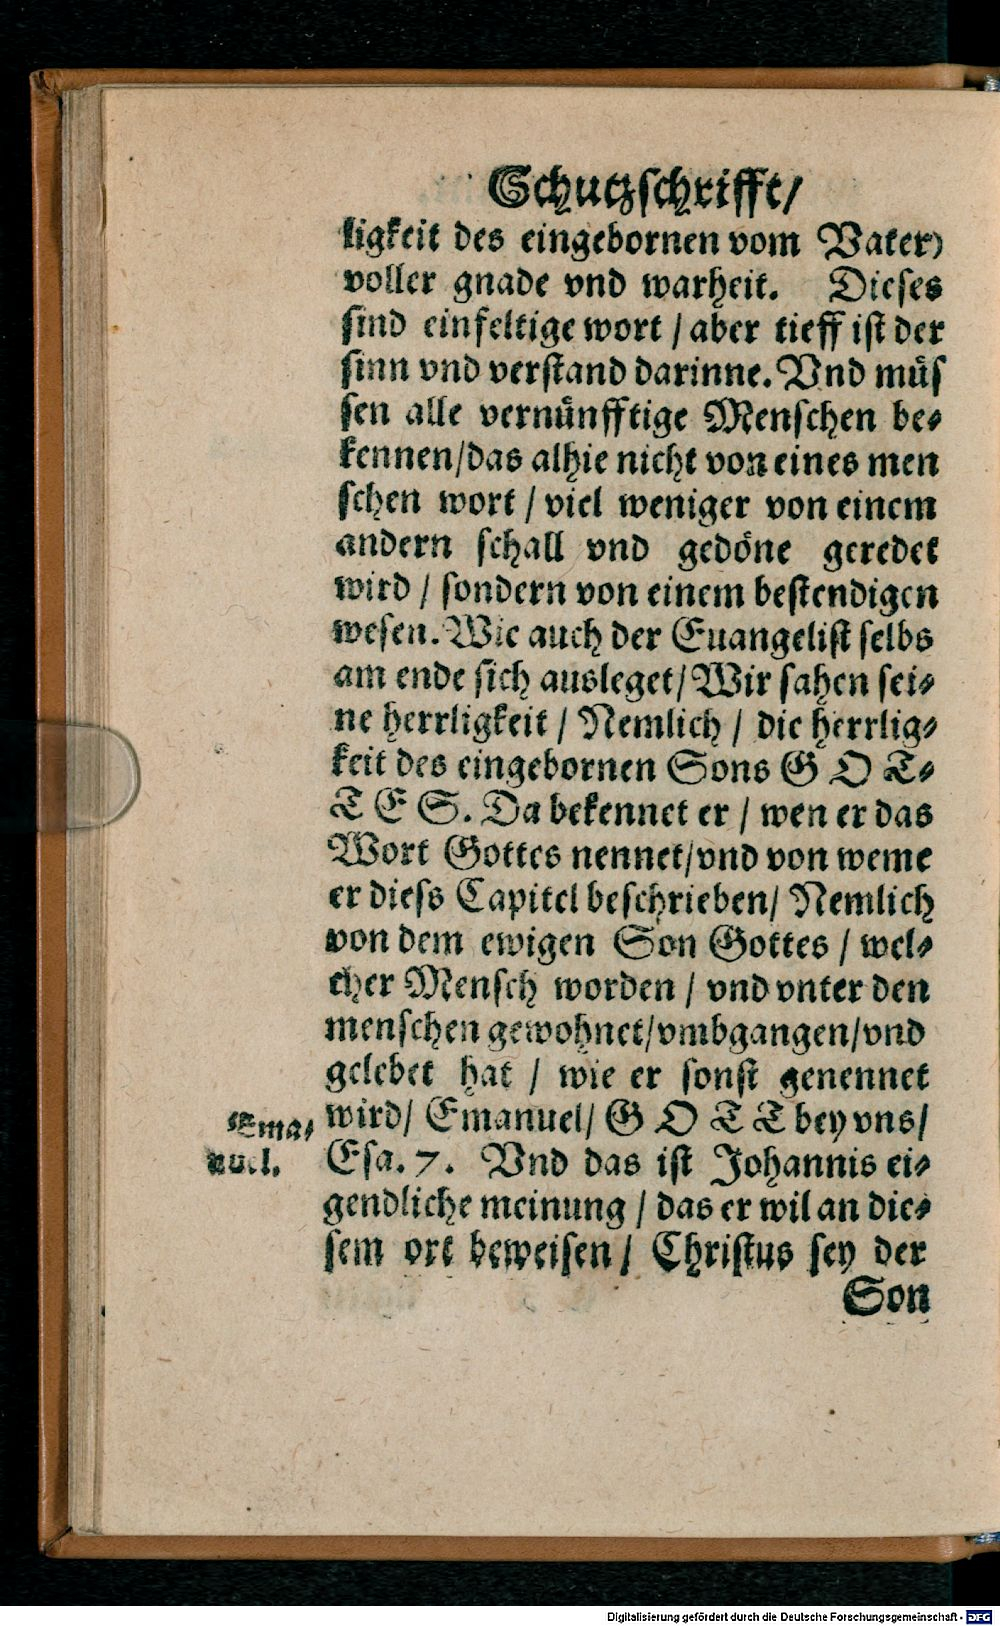 Schutzschrifft/
ligkeit des eingebornen vom Vater)
voller gnade vnd warheit. Dieses
sind einfeltige wort / aber tieff ist der
sinn vnd verstand darinne. Vnd müs
sen alle vernünfftige Menschen be⸗
kennen/das alhie nicht von eines men
schen wort / viel weniger von einem
andern schall vnd gedöne geredet
wird / sondern von einem bestendigen
wesen. Wie auch der Euangelist selbs
am ende sich ausleget/ Wir sahen sei⸗
ne herrligkeit / Nemlich / die herrlig⸗
keit des eingebornen Sons G O T⸗
T E S. Da bekennet er / wen er das
Wort Gottes nennet/vnd von weme
er diess Capitel beschrieben/ Nemlich
von dem ewigen Son Gottes / wel⸗
cher Mensch worden / vnd vnter den
menschen gewohnet/vmbgangen/vnd
gelebet hat / wie er sonst genennet
wird/ Emanuel/ G O T T bey vns/
Ema⸗
nuel.
Esa. 7. Vnd das ist Johannis ei⸗
gendliche meinung / das er wil an die⸗
sem ort beweisen / Christus sey der
Son
Digitalisierung gefördert durch die Deutsche Forschungsgemeinschaft - DFG